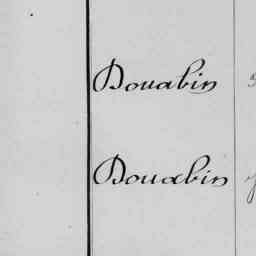 Douabin
Douabin